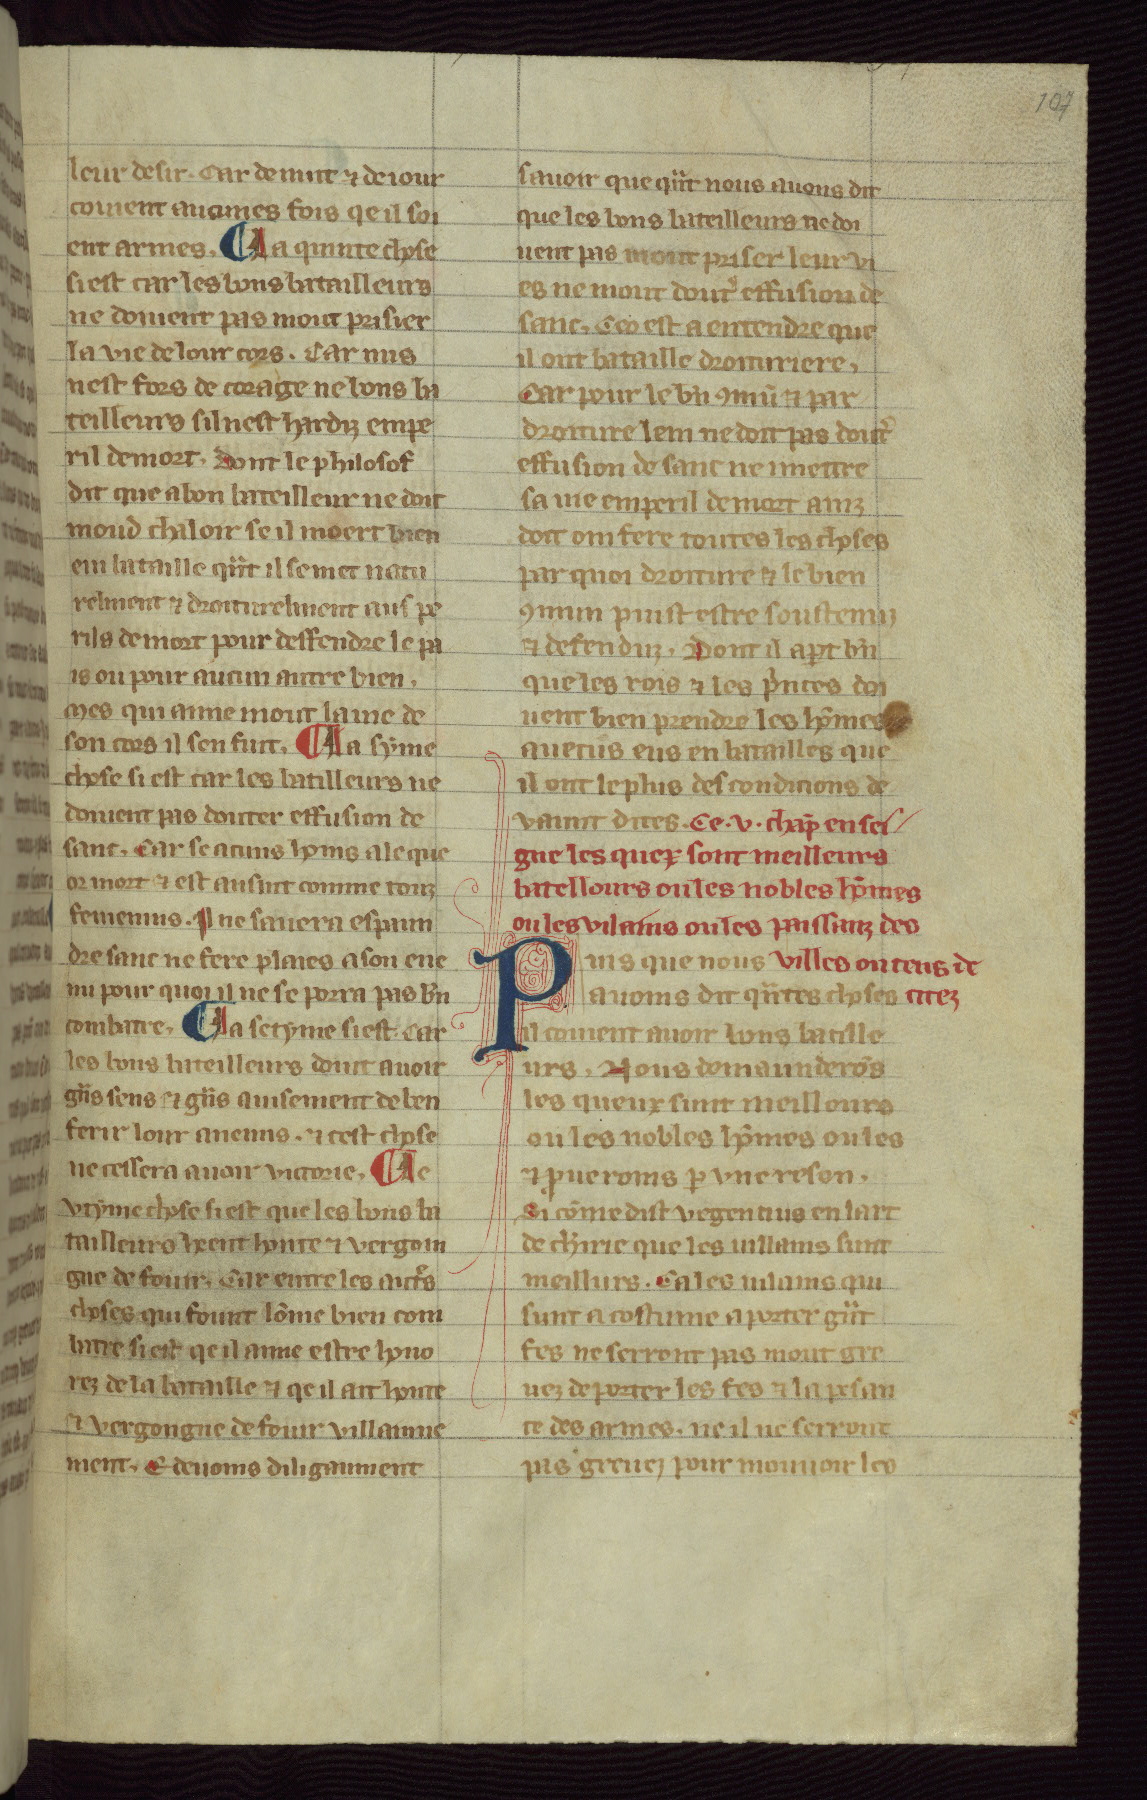 107
leur desir. Car de nuit ⁊ de iour
couient aucunes fois qe il soi
ent armes. ¶ La quinte chose
si est car les bons batailleurs
ne doiuent pas mout prisier
la vie de lour cors. Car nus
nest fors de corage ne bons ba
teilleurs sil nest hardiz empe
ril de mort. Dont le philosof
dit que a bon bateilleur ne doit
moud chaloir se il moert bien
en bataille qñt il se met natu
relment ⁊ droiturelment aus pe
rils de mort pour deffendre le pa
is ou pour aucun autre bien.
Mes qui aime mout la uie de
son cors il sen fuit. ¶ La syme
chose si est car les batilleurs ne
doiuent pas douter effusion de
sanc. Car se acuns homs a le que
or mort ⁊ est ausuit comme touz
femenins. Il ne sauera espaun
dre sanc ne fere plaies a son ene
mi pour quoi il ne se porra pas bñ
combatre. ¶ La setyme si est. Car
les bons bateilleurs doiut auoir
gñs sens ⁊ gñs auisement de ben
ferir lour anemis. ⁊ cest chose
ne cessera auoir victorie. ¶ Le
vtyme chose si est que les bons ba
tailleurs heent honte ⁊ vergoin
gne de fouir. Car entre les autrs
choses qui fount lōme bien com
batre si est qe il aime estre hono
rez de la bataille ⁊ qe il ait honte
⁊ vergongne de fouir villainne
ment. E deuoms diligaument
sauoir que qñt nous auons dit
que les bons bateilleurs ne doi
uent pas mout priser leur vi
es ne mout dout' effusion de
sanc. Ceo est a entendre que
il ont bataille droituriere.
Car pour le bñ ꝯmũ ⁊ par
droiture lem ne doit pas dout'
effusion de sanc ne mettre
sa uie emperil de mort ainz
doit om fere toutes les choses
par quoi droiture ⁊ le bien
ꝯmun puist estre soustenuz
⁊ defenduz. Dont il apt bñ
que les rois ⁊ les p'nces doi
uent bien prendre les hōmes
auecus eus en batailles que
il ont le plus des condicions de
vaunt dites. Ce .v. chap̄ ensei
gne les quex sont meilleurs
batellours ou les nobles hōmes
ou les vilains ou les paissanz des
villes ou ceus de
citez
Puis que nous
auoms dit qñtes choses
il couient auoir bons batille
urs. Nous demaunderōs
les queux sunt meillours
ou les nobles hōmes ou les
⁊ ꝓueroms ꝑ vne reson.
Si cōme dist vegentius en lart
de ch'irie que les uillains sunt
meillurs. Ca les uilains qui
sunt a costume a porter gñt
fes ne serront pas mout gre
uez de porter les fes ⁊ la pesan
ce des armes. ne il ne serront
pas greuez pour mouuoir les